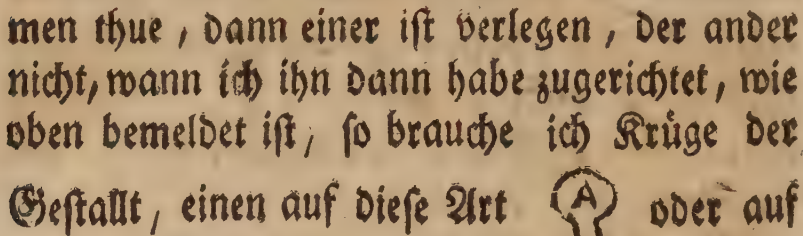 men thue, dann einer ist verlegen, der ander
nicht, wann ich ihn dann habe zugerichtet, wie
oben bemeldet ist, so brauche ich Krüge der
Gestallt, einen auf diese Art A oder auf